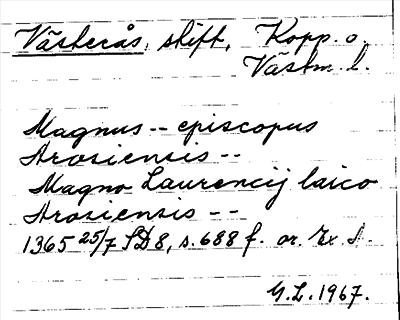 Västerås, stift, Kopp. o.
Västm. l.
Magnus -- episcopus
Arosiensis --
Magno Laurencij laico
Arosiensis --
1365 25/7 SD 8, s. 688 f. or. Ex. A.
G.L. 1967.